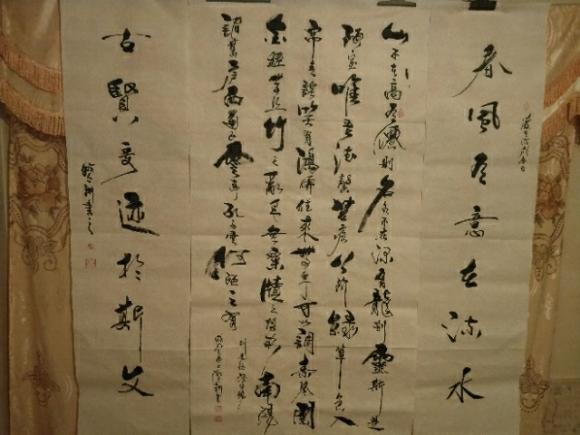 春風有意在流水
山不在高有僊則名水不在深有龍則靈斯是
陋室唯吾德馨苔痕上階綠草色入
帘青談笑有鴻儒往來無白丁可以調素琴閱
金經無絲竹之亂耳無案牘之勞形南陽
諸葛廬西蜀子雲亭孔子云何陋之有
古賢寄迹於斯文